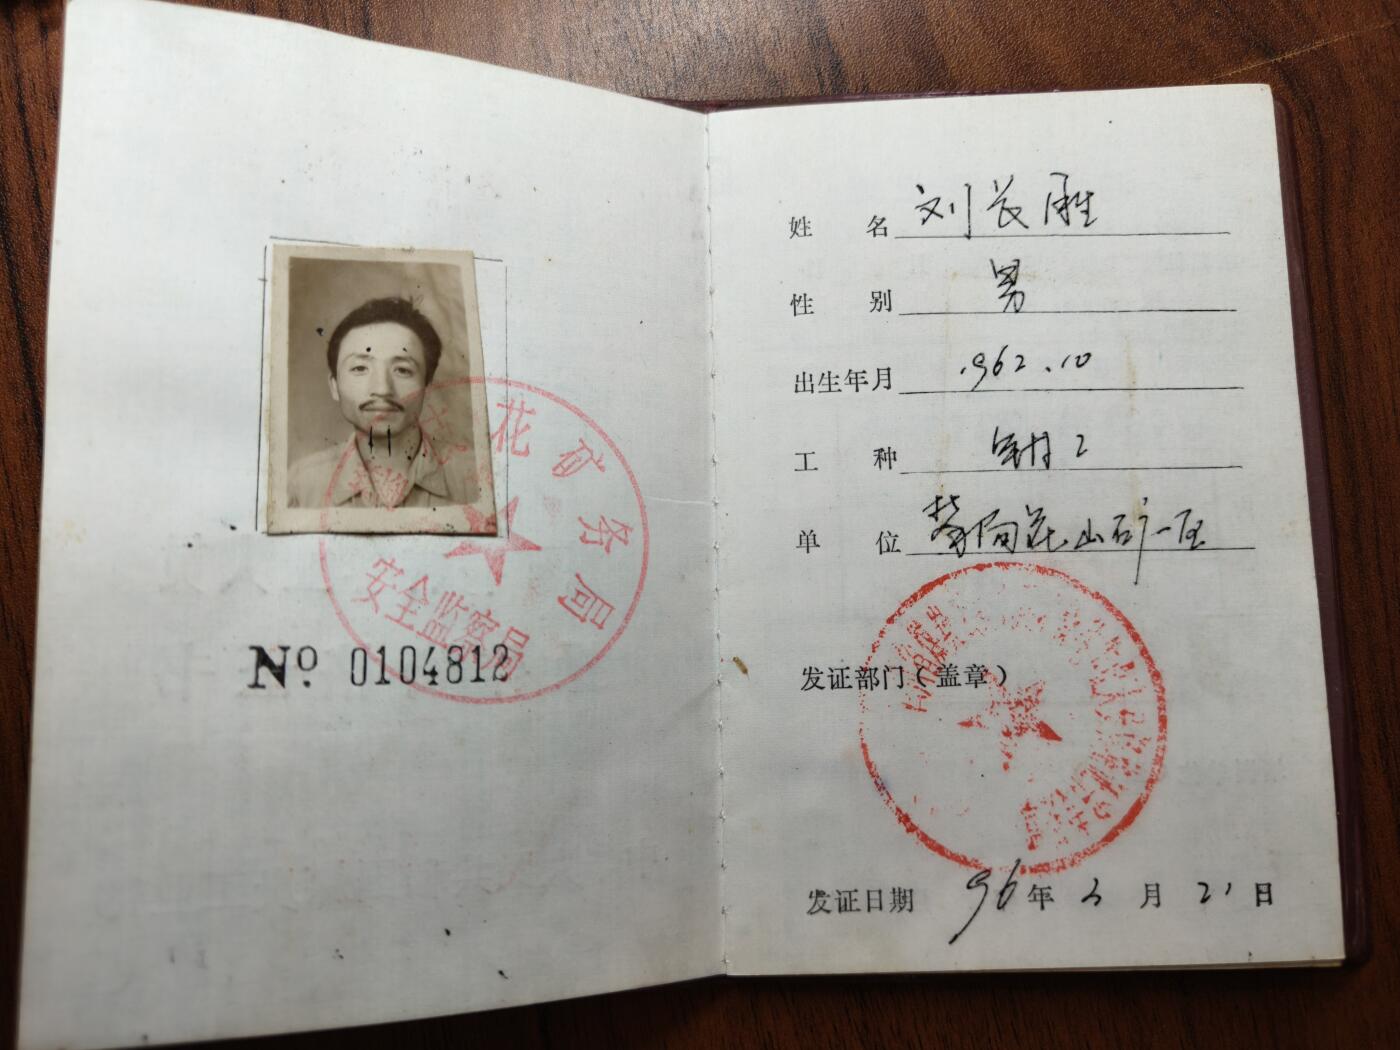 花矿务局
安全监察局
Nº 0104812
姓名 刘长胜
性别 男
出生年月 1962.10
工种
单位 山矿一区
发证部门（盖章）
发证日期 96年 月 21日